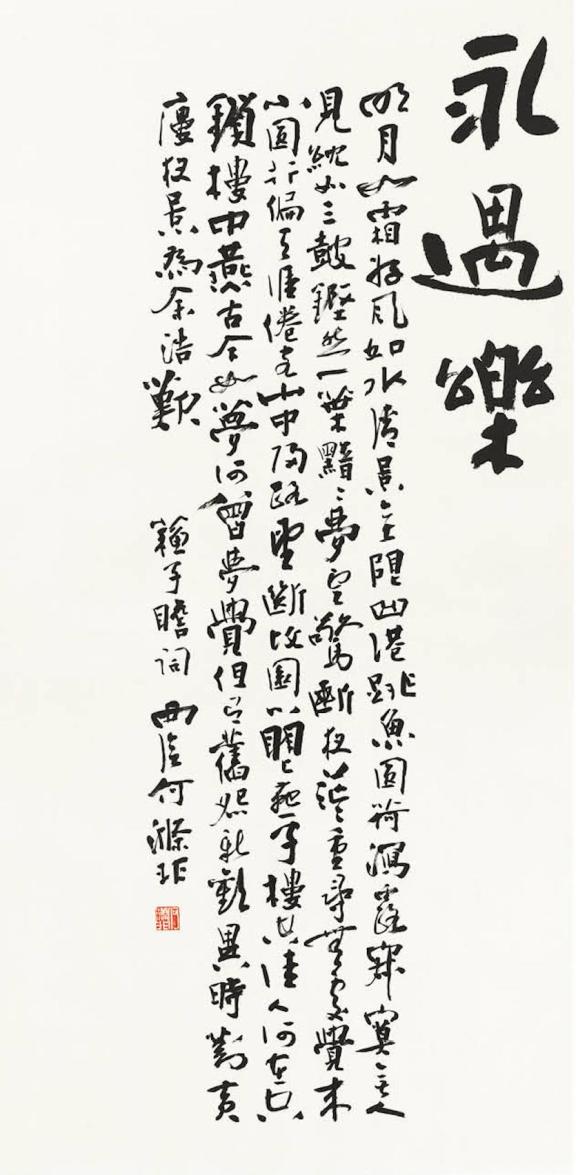 永遇樂
明月如霜好風如水清景無限曲港跳魚圓荷瀉露寂寞無人
見紞如三鼓鏗然一葉黯〻夢雲驚斷夜茫〻重尋無處覺來
小園行徧天涯倦客山中歸路望斷故園心眼燕子樓空佳人何在空
鎖樓中燕古今如夢何曾夢覺但有舊怨新歡異時對黃
廔夜景為余浩歎 蘇子瞻詞 西 何滌非